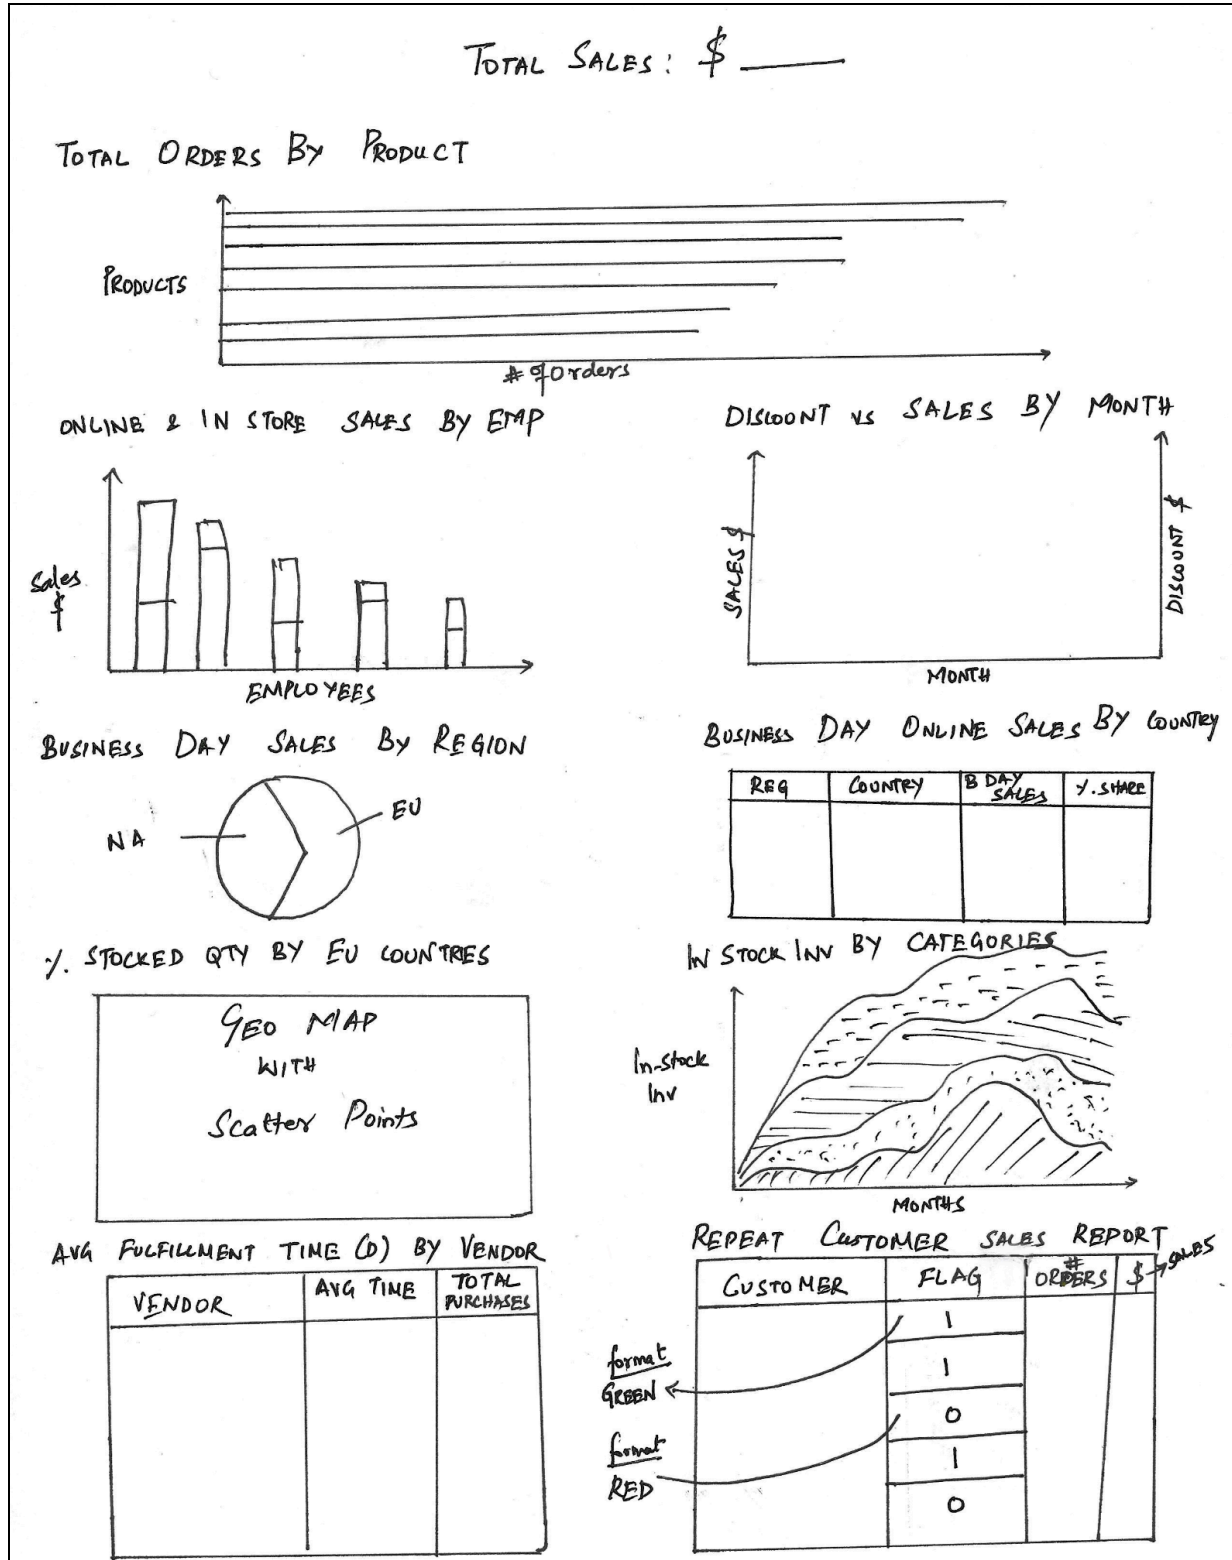 TOTAL SALES: $ ____
TOTAL ORDERS BY PRODUCT
PRODUCTS
# of Orders
ONLINE & IN STORE SALES BY EMP
Sales
$
EMPLOYEES
DISCOUNT vs SALES BY MONTH
SALES $
DISCOUNT $
MONTH
BUSINESS DAY SALES BY REGION
NA
EU
BUSINESS DAY ONLINE SALES BY COUNTRY
REG
COUNTRY
B DAY
SALES
%. SHARE
%. STOCKED QTY BY EU COUNTRIES
GEO MAP
WITH
Scatter Points
IN STOCK INV BY CATEGORIES
In-stock
Inv
MONTHS
AVG FULFILLMENT TIME (D) BY VENDOR
VENDOR
AVG TIME
TOTAL
PURCHASES
REPEAT CUSTOMER SALES REPORT
CUSTOMER
FLAG
#
ORDERS
$ → SALES
1
1
0
1
0
format
GREEN
format
RED